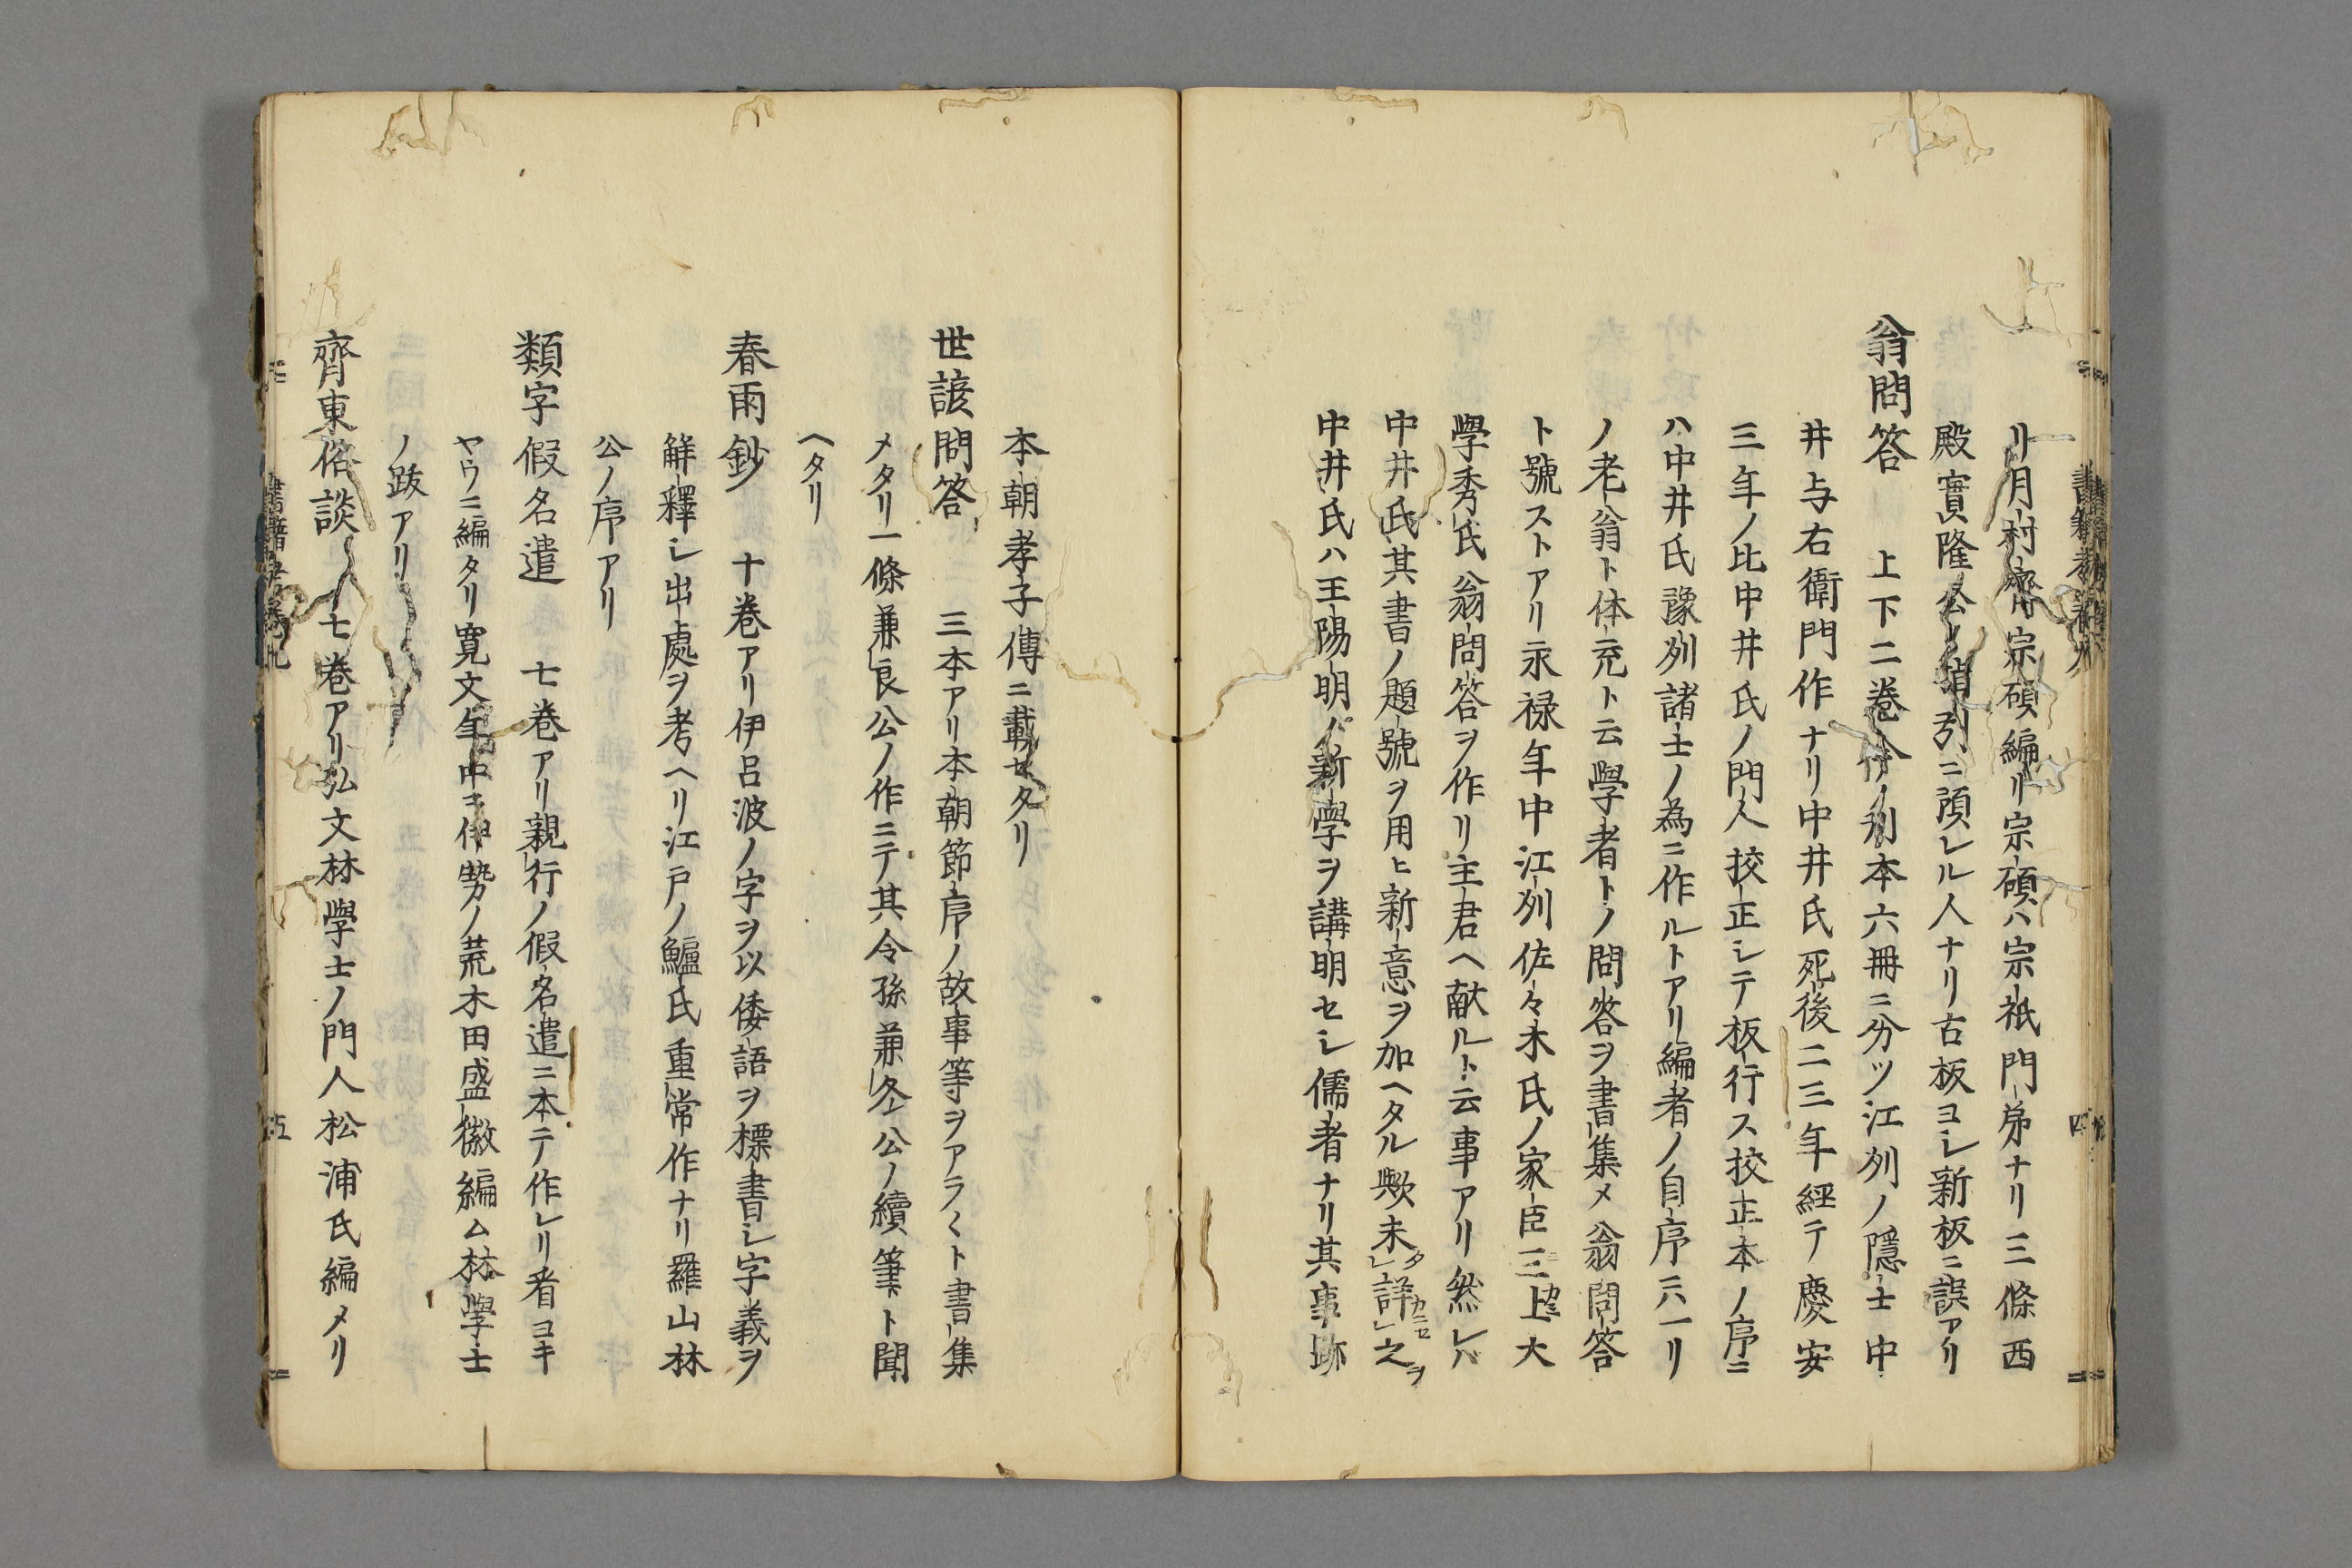 リ月村齋宗碩編リ宗碩ハ宗祇門弟ナリ三條西
殿實隆公ノ 引ニ預レル人ナリ古板ヨシ新板ニ誤アリ
翁問答 上下二巻今ノ刋本六冊ニ分ツ江刕ノ隱士中
井与右衛門作ナリ中井氏死後二三年經テ慶安
三年ノ比中井氏ノ門人挍正シテ板行ス挍正本ノ序ニ
ハ中井氏豫刕諸士ノ為ニ作ルトアリ編者ノ自序ニハ一リ
ノ老翁ト体充ト云學者トノ問答ヲ書集メ翁問答
ト號ストアリ永禄年中江刕佐々木氏ノ家臣三上大
學秀氏翁問答ヲ作リ主君ヘ献ルト云事アリ然レハ
中井氏其書ノ題號ヲ用ヒ新意ヲ加ヘタル歟未タ詳カニセ之ヲ
中井氏ハ王陽明ノ新學ヲ講明セシ儒者ナリ其事跡
本朝孝子傳ニ載セタリ
世諺問答 三本アリ本朝節序ノ故事等ヲアラ〱ト書集
メタリ一條兼良公ノ作ニテ其令孫兼冬公ノ續筆ト聞
ヘタリ
春雨鈔 十巻アリ伊呂波ノ字ヲ以倭語ヲ標書シ字義ヲ
解釋シ出處ヲ考ヘリ江戸ノ鱸氏重常作ナリ羅山林
公ノ序アリ
類字假名遣 七巻アリ親行ノ假名遣ニ本テ作レリ看ヨキ
ヤウニ編タリ寛文年中ニ伊勢ノ荒木田盛徽編ム林學士
ノ跋アリ
齊東俗談 七巻アリ弘文林學士ノ門人松浦氏編メリ
書籍考巻九
五